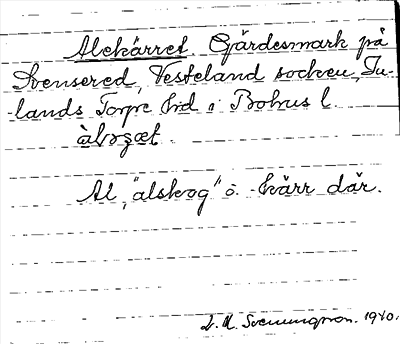 Alekärret. Gärdesmark på
Svensered, Vesteland socken, In-
-lands Torpe hd i Bohus l.
Al, "alskog" o. kärr där.
1940.